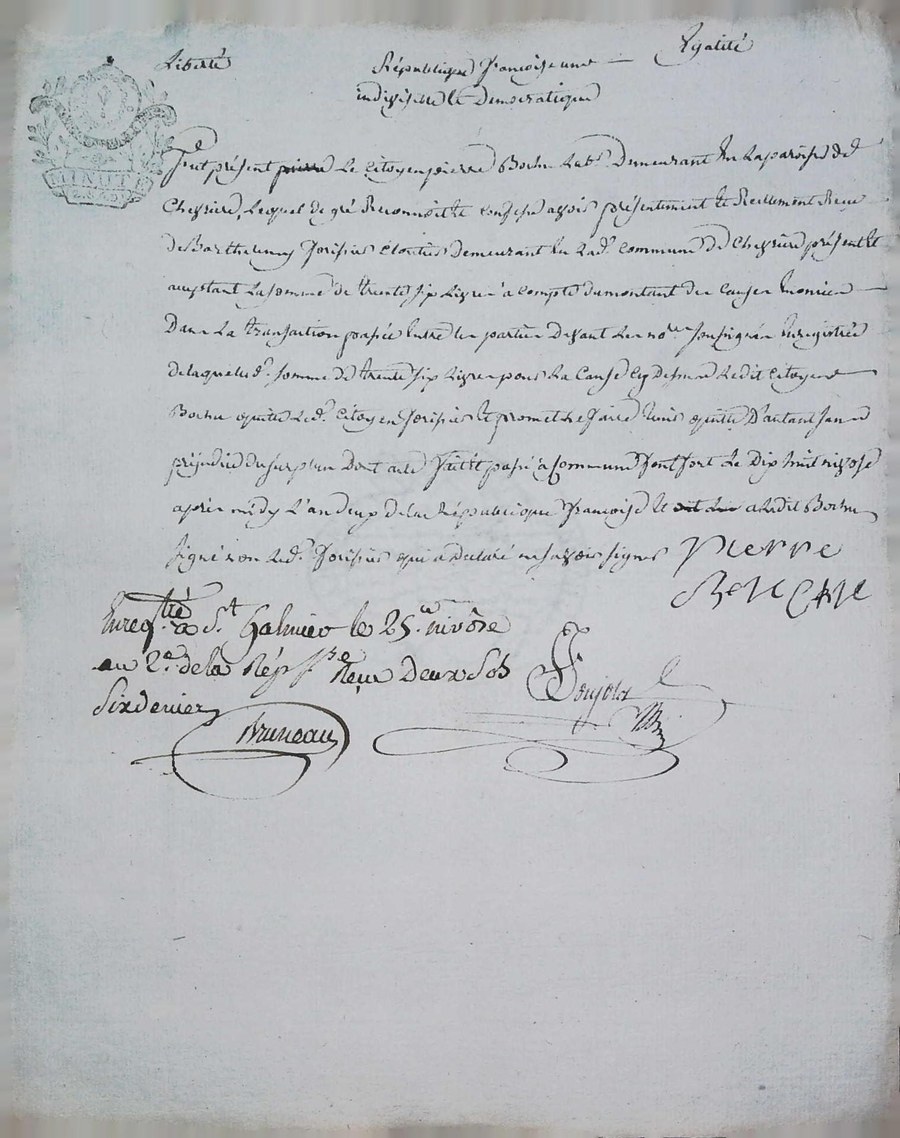 Liberté République françoise une Egalité
indivisible et Democratique
fut présent pierre Le Citoyen pierre Demeurant En La paroisse de
Chevriere Lequel de gré Reconnoit et confesse avoir présentement et Reellement Receu
de Barthelemy Demeurant En Lad. commune de Chevriere présent et
acceptant La somme de trente six Livres a compte du montant des causes
Dans La transaction passée Entre les parties devant Les no.res soussignés Enregistrée
de laquelle d. somme de trente six Livres pour La Cause cy dessus Ledit Citoyen
quitte Led. Citoyen et promet Le faire tenir quitte D'autant sans
préjudice du surplus Dont acte fait et passé a Commune fontfort Le Dix huit nivose
après midy L'an deux de La République francoise et a Ledit
signé non Led. qui a Declaré ne savoir signer pierre
Enreg.tré a S.t Galmier le 25.e nivôse
an 2.e de la Rép. f.se Reçu Deux Sols
Six deniers
Bruneau
MINUTE